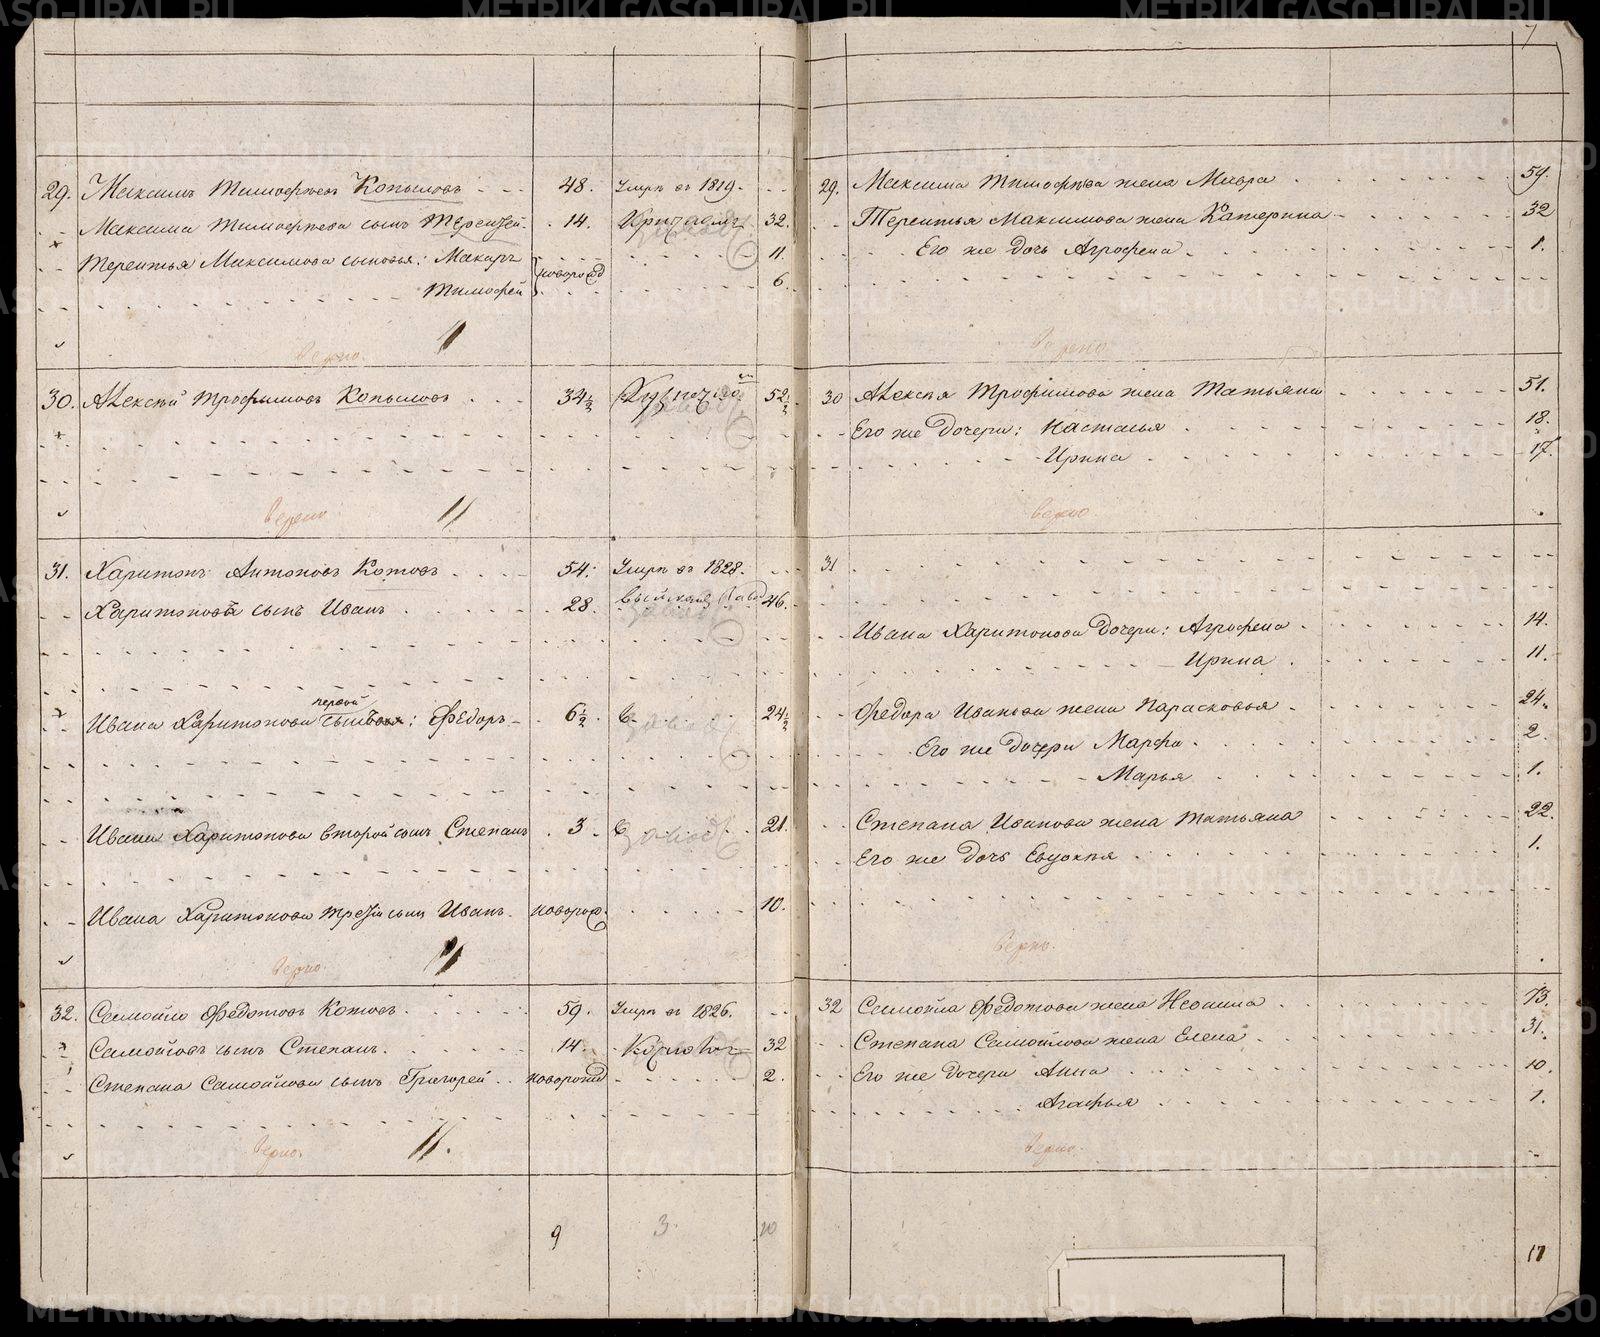 7
29. Максимъ Тимофѣевъ Копыловъ - - - 48. Умръ въ 1819. - -
Максима Тимофѣева сынъ Терентей. - 14. 32.
Терентья Максимова сыновья: Макаръ новорожд 11.
Тимофей 6.
Верно.
30. Алексѣй Трофимовъ Копыловъ 34½ 52½
Верно
31. Харитонъ Антоновъ Котовъ 54. Умръ въ 1828.
Харитоновъ сынъ Иванъ 28. 46.
первой
Ивана Харитонова сынъ: Федоръ 6½ 24½
Ивана Харитонова второй сынъ Степанъ 3. 21.
Ивана Харитонова третій сынъ Иванъ новорож. 10.
Верно.
32. Самойло Федотовъ Котовъ 59. Умръ въ 1826.
Самойловъ сынъ Степанъ. 14. 32
Степана Самойлова сынъ Григорей новорожд 2.
Верно.
9 3. 10
29. Максима Тимофѣева жена Мавра 59.
Терентья Максимова жена Катерина 32
Его же дочь Агрофена 1.
Верно
30 Алексѣя Трофимова жена Татьяна 51.
Его же дочери: Настасья 18.
Ирина 17.
Верно
31
Ивана Харитонова дочери: Агрофена 14.
Ирина 11.
Федора Иванова жена Парасковья 24.
Его же дочери Марфа 2.
Марья 1.
Степана Иванова жена Татьяна 22.
Его же дочь Евдокѣя 1.
Верно.
32 Самойла Федотова жена Неонила 73.
Степана Самойлова жена Елена 31.
Его же дочери Анна 10.
Агафья 1.
Верно.
17
METRIKI.GASO-URAL.RU